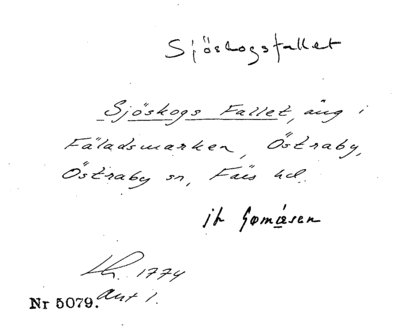 Sjöskogsfallet
Sjöskogs Fallet, äng i
Fäladsmarken, Östraby,
Östraby sn, Färs hd.
Lh. 1774
Akt 1.
Nr 5079.